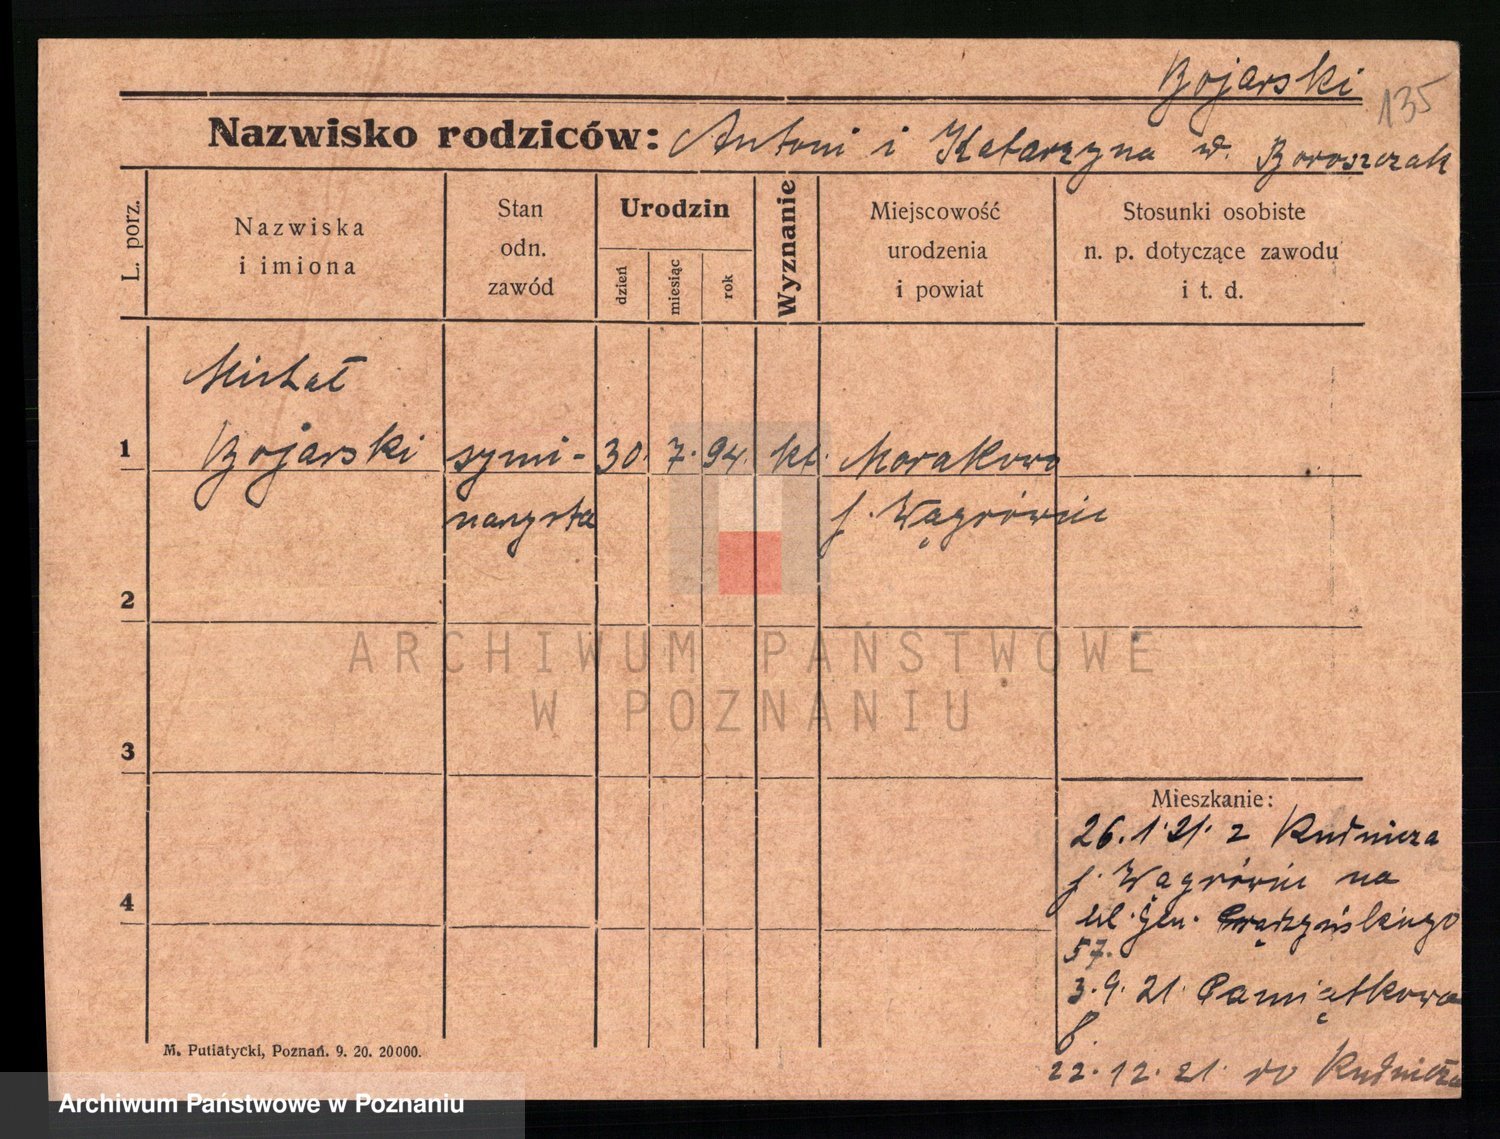 Bojarski
135
Nazwisko rodziców: Antoni i Katarzyna w. Boroszczak
L. porz.
Nazwiska
i imiona
Stan
odn.
zawód
Urodzin
dzień
miesiąc
rok
Wyznanie
Miejscowość
urodzenia
i powiat
Stosunki osobiste
n. p. dotyczące zawodu
i t. d.
Michał
1 Bojarski symi- 30. 7. 94. kt. Morakowo
narzysta p. Wągrówiec
2
ARCHIWUM PAŃSTWOWE
W POZNANIU
3
Mieszkanie:
26.1.21. z Rudnicza
p. Wągrówiec na
ul. Gen. Prądzyńskiego
57.
3.9.21. Pamiątkowa
8.
22.12.21. do Rudnicza
4
M. Putiatycki, Poznań. 9. 20. 20000.
Archiwum Państwowe w Poznaniu